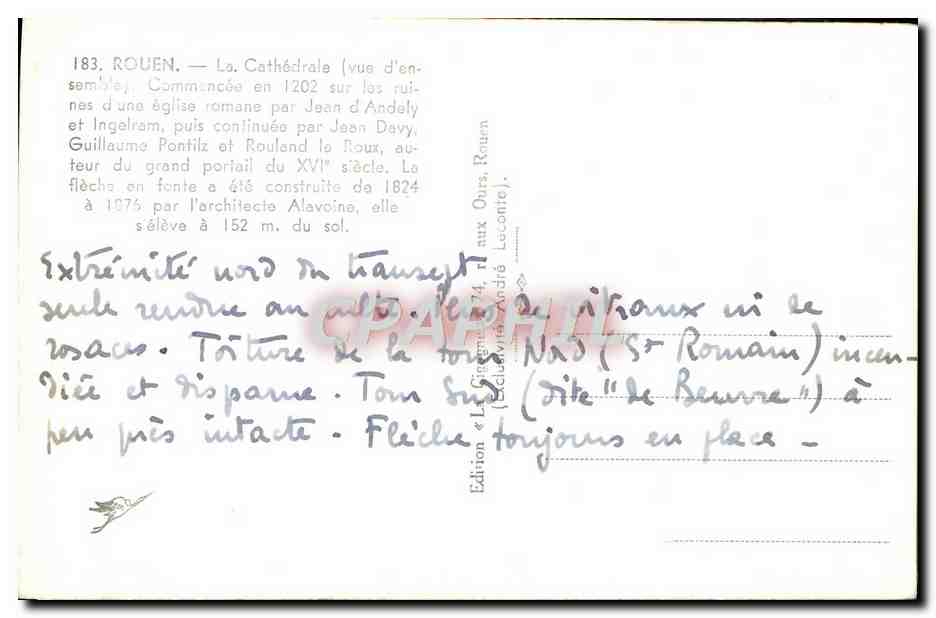 183. ROUEN. — La Cathédrale (vue d'en-
semble). Commencée en 1202 sur les rui-
nes d'une église romane par Jean d'Andely
et Ingelram, puis continuée par Jean Davy,
Guillaume Pontilz et Rouland le Roux, au-
teur du grand portail du XVIe siècle. La
flèche en fonte a été construite de 1824
à 1876 par l'architecte Alavoine, elle
s'élève à 152 m. du sol.
Extrémité nord du transept
seule rendue au culte. Plus de vitraux ni de
rosaces. Toiture de la tour Nord (St Romain) incen-
diée et disparue. Tour Sud (dite "de Beurre") à
peu près intacte. Flèche toujours en place —
Edition « La Cigogne » 74, r. aux Ours, Rouen
(Exclusivité André Leconte).
CPAPHIL